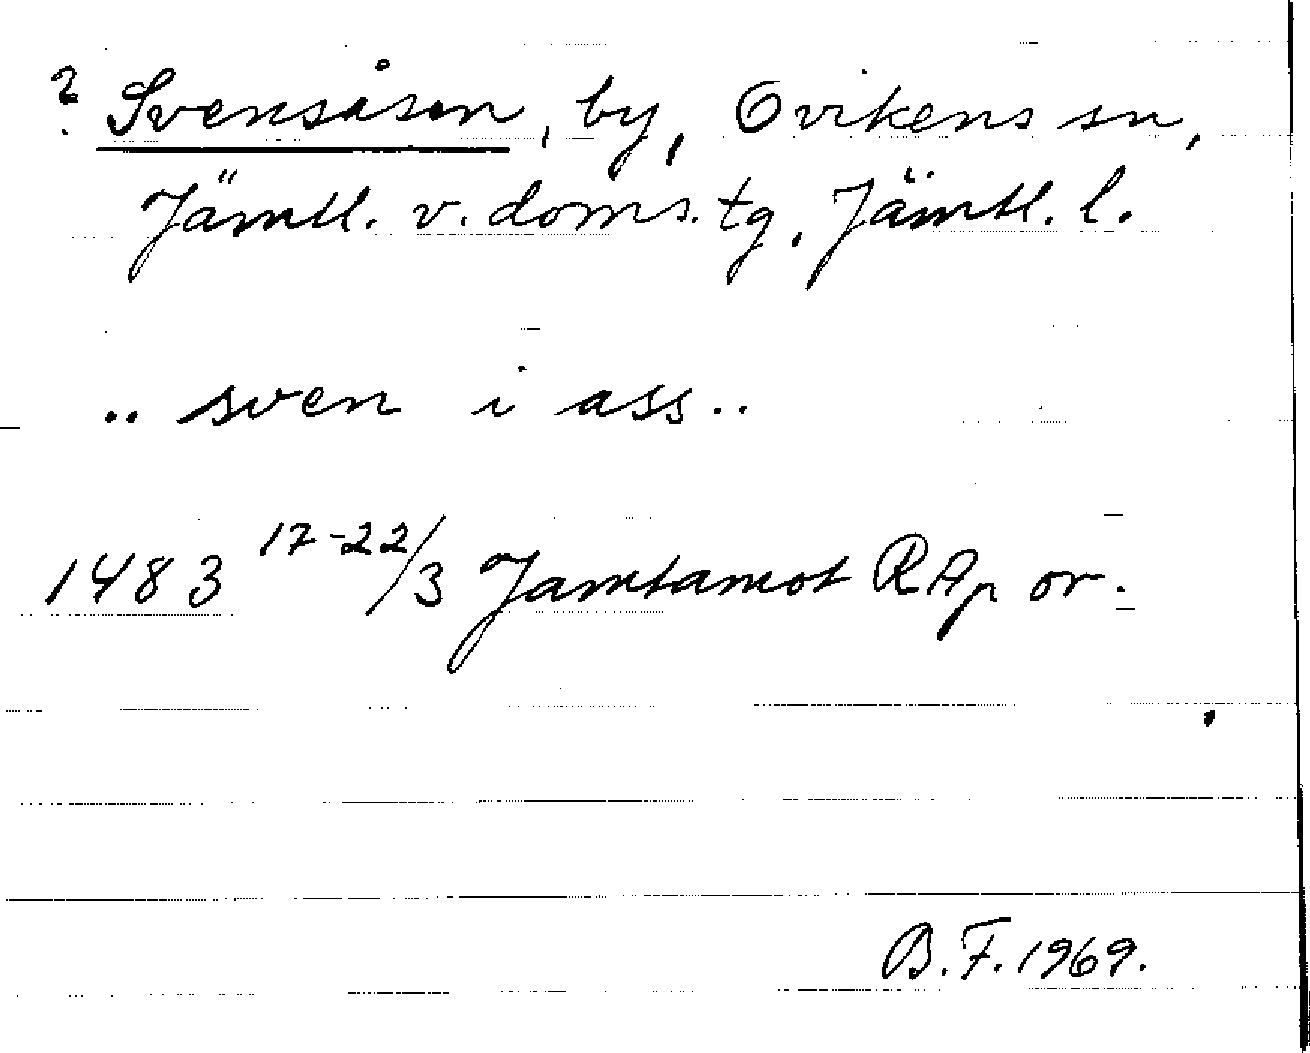 ? Svensåsen, by, Ovikens sn,
Jämtl. v. doms. tg, Jämtl. l.
.. sven i ass..
1483 17-22/3 Jamtamot RAp or.
B.F. 1969.